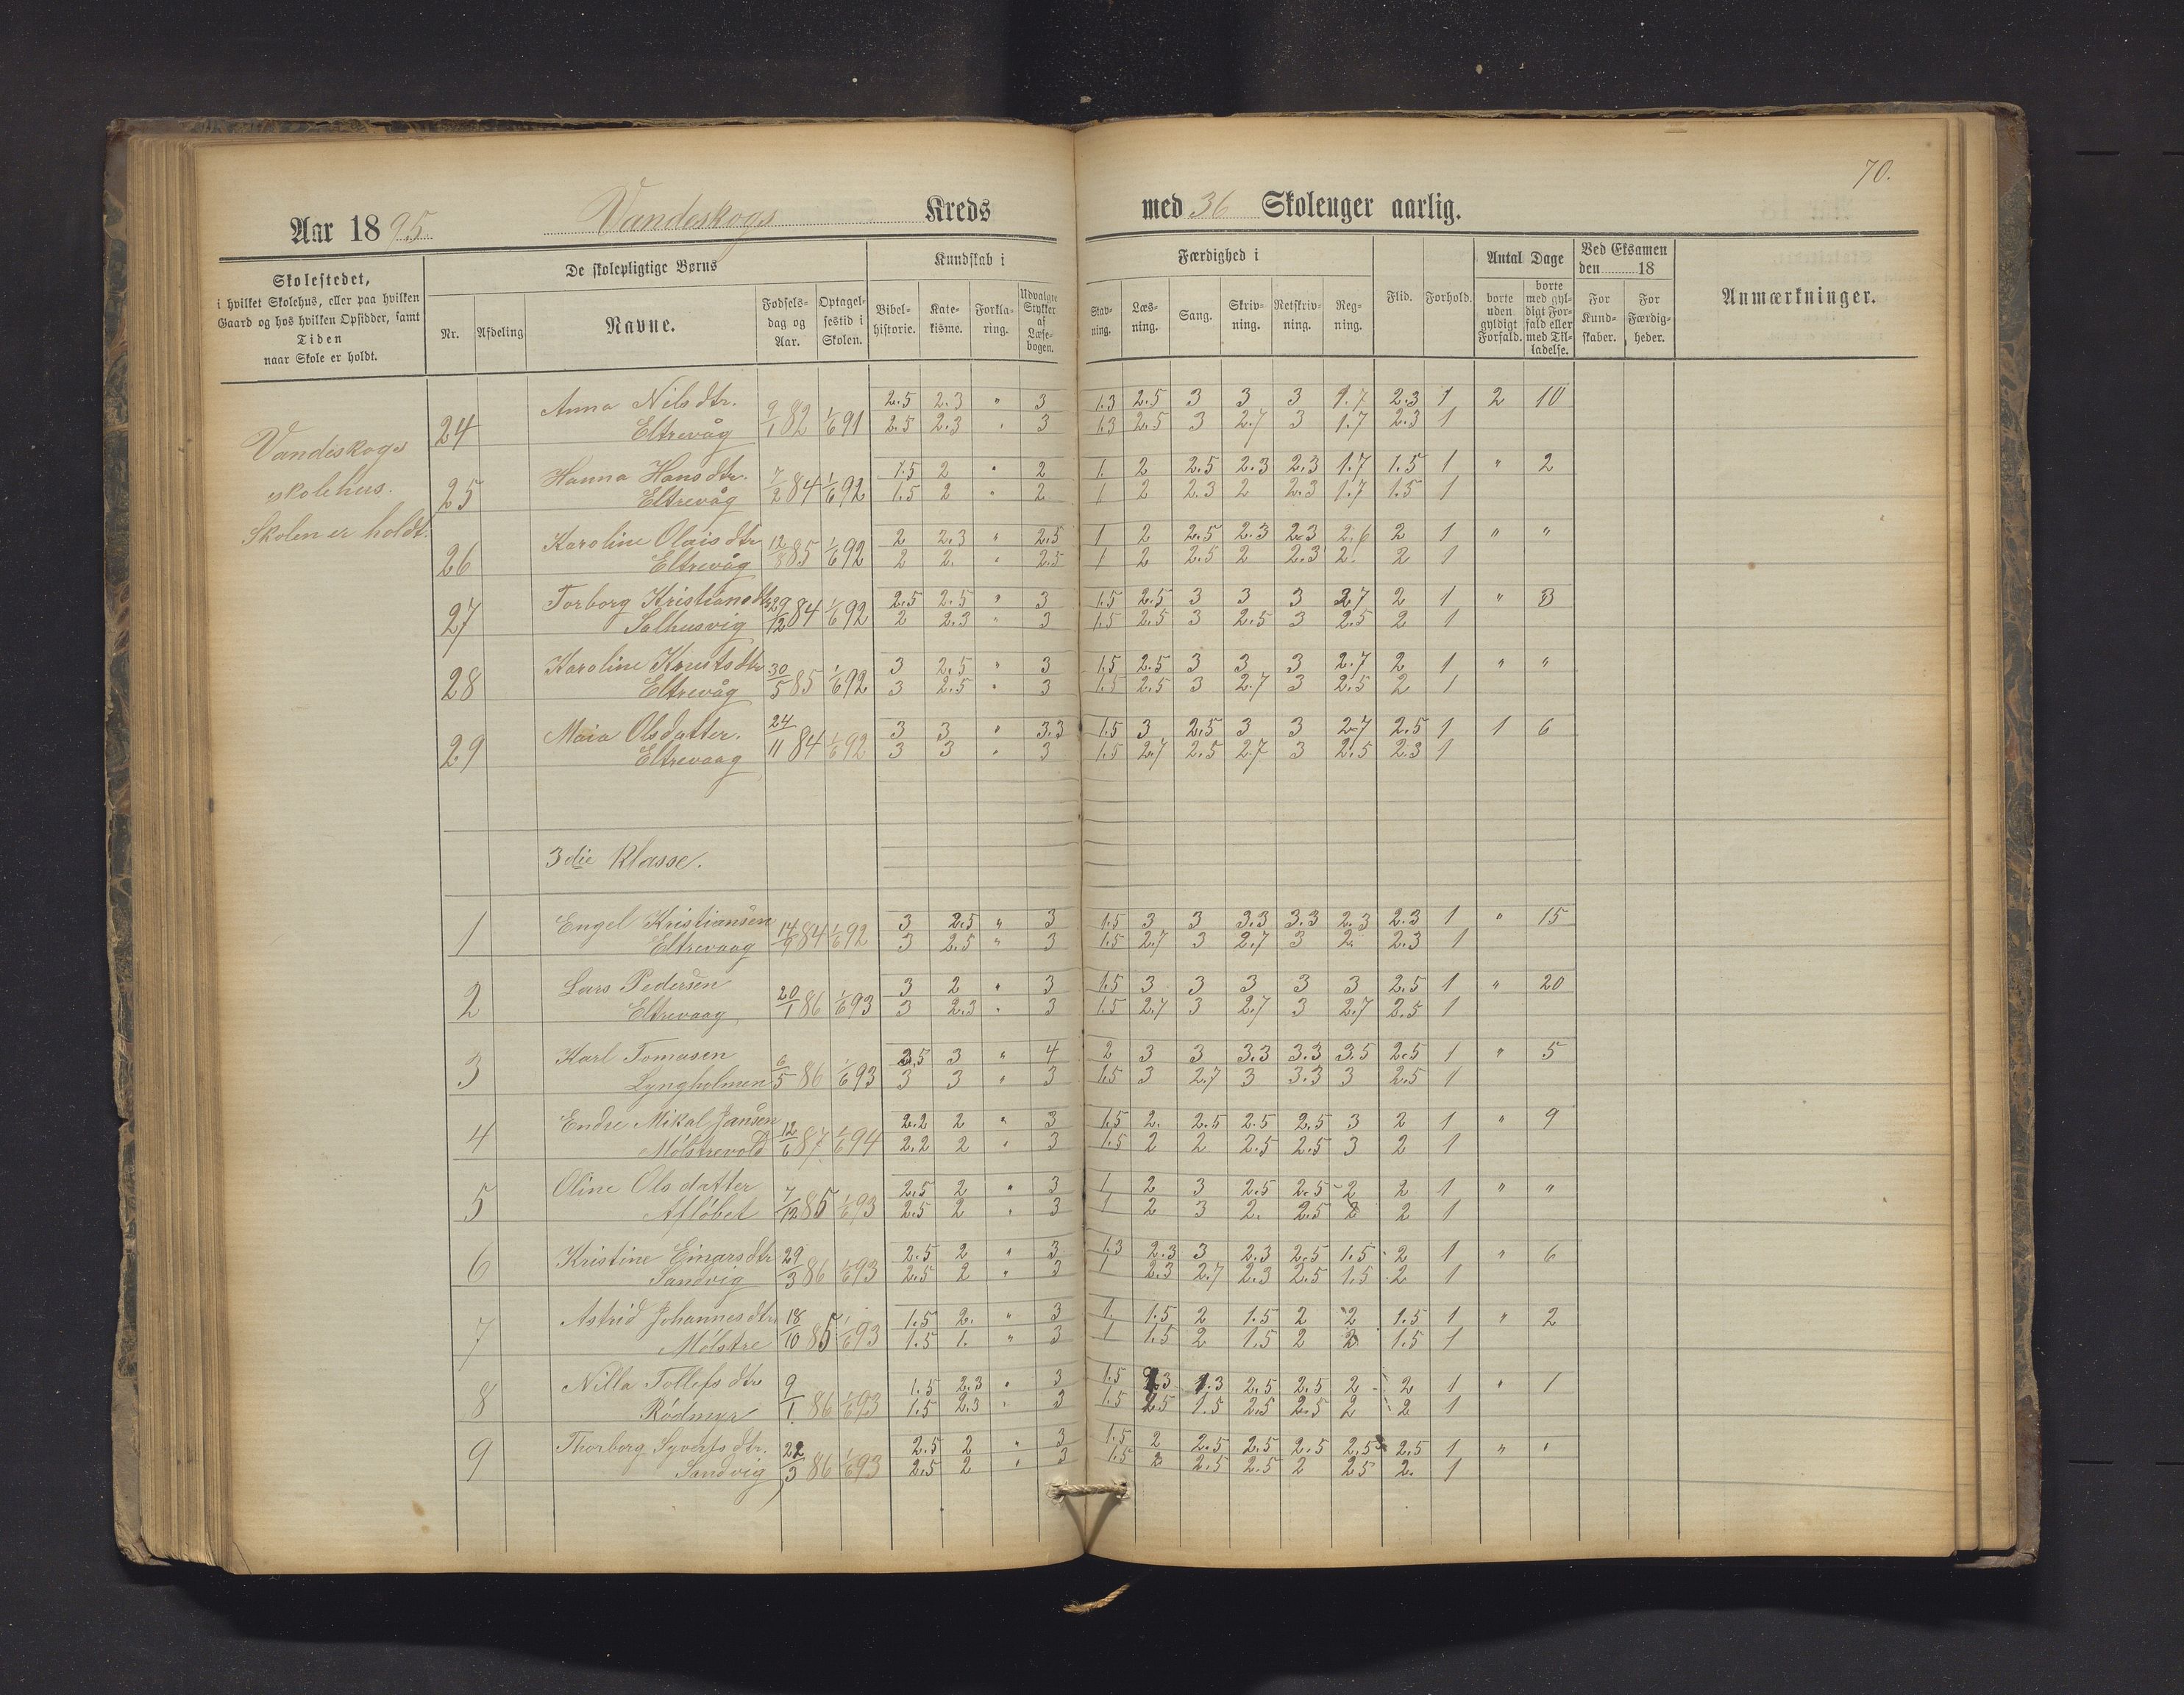 70.
Aar 1895. Vandeskogs Kreds med 36 Skoleuger aarlig.
Skolestedet, i hvilket Skolehus, eller paa hvilken Gaard og hos hvilken Opsidder, samt Tiden naar Skole er holdt.
De skolepligtige Børns
Nr. Afdeling Navne. Fødselsdag og Aar. Optagelsestid i Skolen.
Kundskab i
Bibelhistorie. Katekisme. Forklaring. Udvalgte Stykker af Læsebogen.
Færdighed i
Stavning. Læsning. Sang. Skrivning. Retskrivning. Regning.
Flid. Forhold.
Antal Dage
borte uden gyldigt Forfald. borte med gyldigt Forfald eller med Tilladelse.
Ved Eksamen den 18
For Kundskaber. For Færdigheder.
Anmærkninger.
Vandeskogs
skolehus.
Skolen er holdt.
24 Anna Nilsdtr. 9/1 82 1/6 91 2.5 2.3 " 3 1.3 2.5 3 3 3 1.7 2.3 1 2 10
Eltrevåg 2.5 2.3 " 3 1.3 2.5 3 2.7 3 1.7 2.3 1
25 Hanna Hansdtr. 7/2 84 1/6 92 1.5 2 " 2 1. 2 2.5 2.3 2.3 1.7 1.5 1 " 2
Eltrevåg 1.5 2 " 2 1 2 2.3 2 2.3 1.7 1.5 1
26 Karoline Olaisdtr 12/8 85 1/6 92 2 2.3 " 2.5 1 2 2.5 2.3 2.3 2 1 " "
Eltrevåg 2 2. " 2.5 1 2 2.5 2 2.3 2. 2 1
27 Torborg Kristiansdtr 29/12 84 1/6 92 2.5 2.5 " 3 1.5 2.5 3 3 3 2.7 2 1 " 3
Salhusvig 2 2.3 " 3 1.5 2.5 3 2.5 3 2.5 2 1
28 Karoline Knutsdtr 30/5 85 1/6 92 3 2.5 " 3 1.5 2.5 3 3 3 2.7 2 1 " "
Eltrevåg 3 2.5 " 3 1.5 2.5 3 2.7 3 2.5 2 1
29 Maia Olsdatter. 24/11 84 1/6 92 3 3 " 3.3 1.5 3 2.5 3 3 2.7 2.5 1 1 6
Eltrevaag 3 3 " 3 1.5 2.7 2.5 2.7 3 2.5 2.3 1
3die Klasse.
1 Engel Kristiansen 14/9 84 1/6 92 3 2.5 " 3 1.5 3 3 3.3 3.3 2.3 2.3 1 " 15
Eltrevaag 3 2.5 " 3 1.5 2.7 3 2.7 3 2. 2.3 1
2 Lars Pedersen 20/1 86 1/6 93 3 2 " 3 1.5 3 3 3 3 3 2.5 1 " 20
Eltrevaag 3 2.3 " 3 1.5 2.7 3 2.7 3 2.7 2.5 1
3 Karl Tomasen 6/5 86 1/6 93 3.5 3 " 4 2 3 3 3.3 3.3 3.5 2.5 1 " 5
Lyngholmen 3 3 " 3 1.5 3 2.7 3 3.3 3 2.5 1
4 Endre Mikal Jansen 12/6 87 1/6 94 2.2 2 " 3 1.5 2. 2.5 2.5 2.5 3 2 1 " 9
Mølstrevold 2.2 2 " 3 1.5 2 2 2.5 2.5 3 2 1
5 Oline Olsdatter 7/12 85 1/6 93 2.5 2 " 3 1 2 3 2.5 2.5 2 2 1 " "
Afløbet 2.5 2 " 3 1 2 3 2. 2.5 2 2 1
6 Kristine Einarsdtr 29/3 86 1/6 93 2.5 2 " 3 1.3 2.3 3 2.3 2.5 1.5 2 1 " 6
Sandvig 2.5 2 " 3 1 2.3 2.7 2.3 2.5 1.5 2 1
7 Astrid Johannesdtr 18/10 85 1/6 93 1.5 2. " 3 1. 1.5 2 1.5 2 2 1.5 1 " 2
Mølstre 1.5 1. " 3 1 1.5 2 1.5 2 2 1.5 1
8 Nilla Tollefsdtr 9/1 86 1/6 93 1.5 2.3 " 3 1.5 2.3 1.3 2.5 2.5 2 2 1 " 1
Rødmyr 1.5 2.3 " 3 1.5 2.5 1.5 2.5 2.5 2 2 1
9 Thorborg Syvertsdtr. 22/3 86 1/6 93 2.5 2 " 3 1.5 2 2.5 2.5 2.5 2.5 2.5 1 " "
Sandvig 2.5 2 " 3 1.5 2 2.5 2.5 2 2.5 2. 1